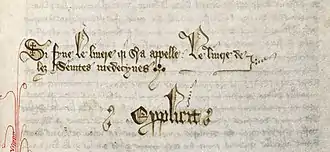 Si fyne le livere qi s'a appelle le livere de
les seintes medecynes
Explicit